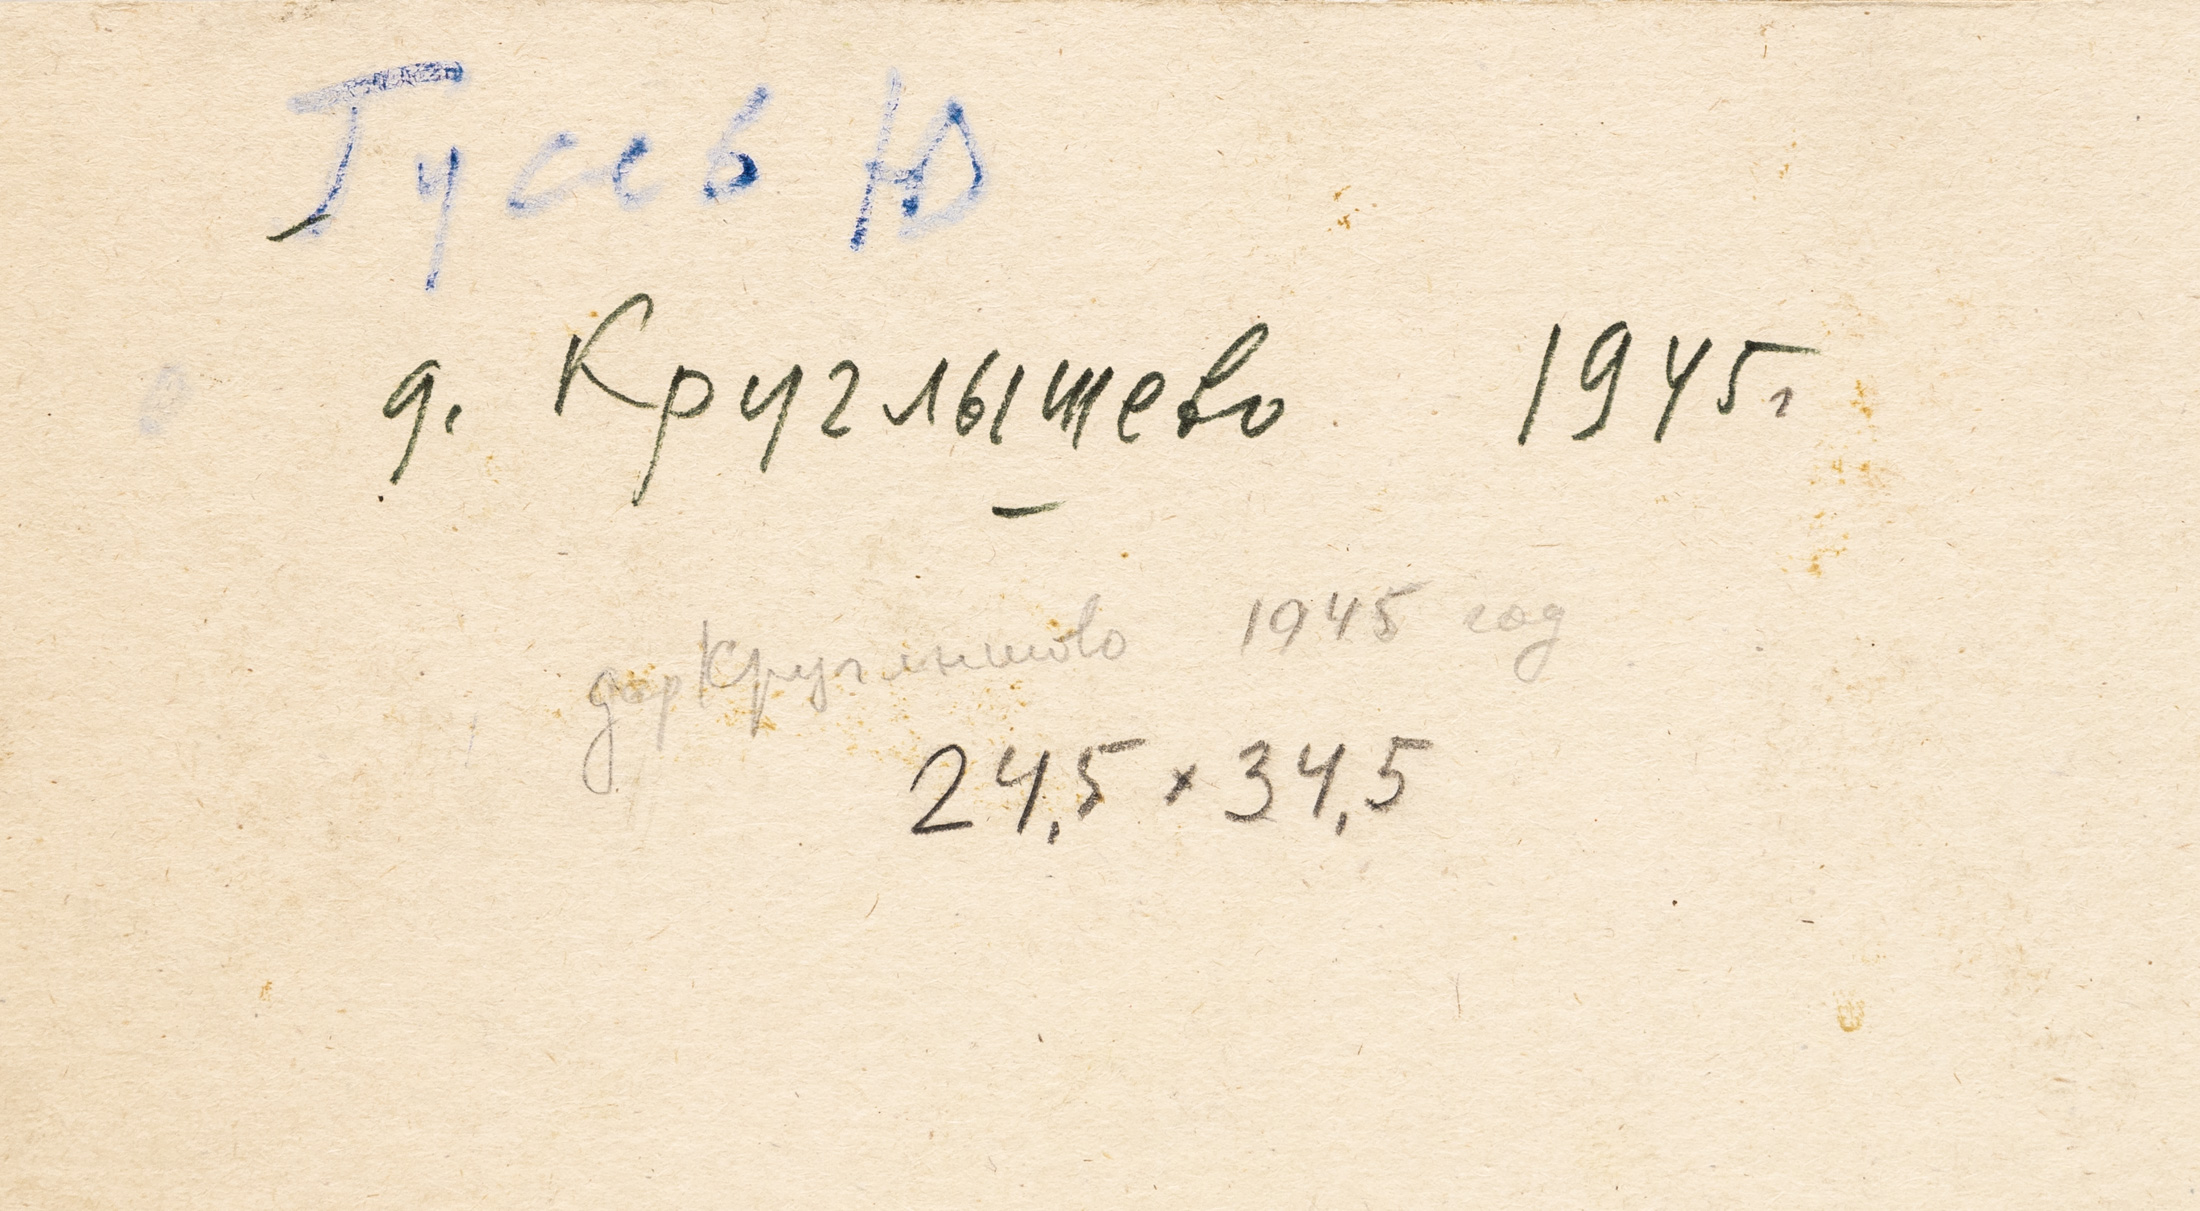 Гусев Ю
д. Круглышево 1945г
дер Круглышово 1945 год
24,5 × 34,5